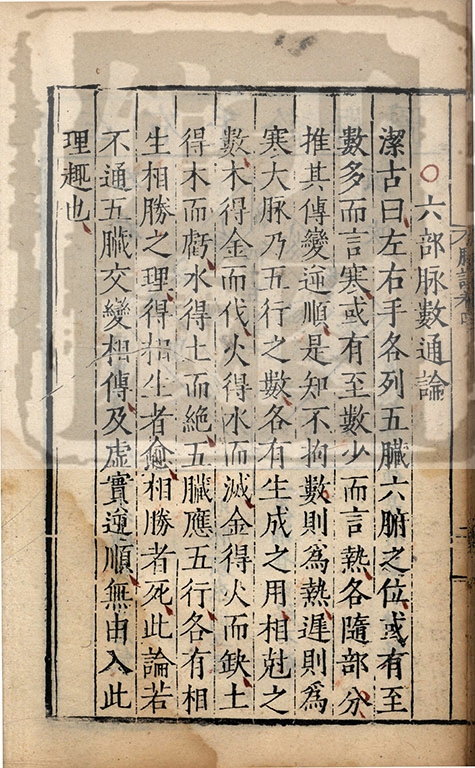 ○六部脉數通論
潔古曰左右手各列五臟六腑之位或有至
數多而言寒或有至數少而言熱各隨部分
推其傳變逆順是知不拘數則為熱遲則為
寒大脉乃五行之數各有生成之用相尅之
數木得金而伐火得水而滅金得火而缺土
得木而虧水得土而絕五臟應五行各有相
生相勝之理得相生者愈相勝者死此論若
不通五臟交變相傳及虛實逆順無由入此
理趣也